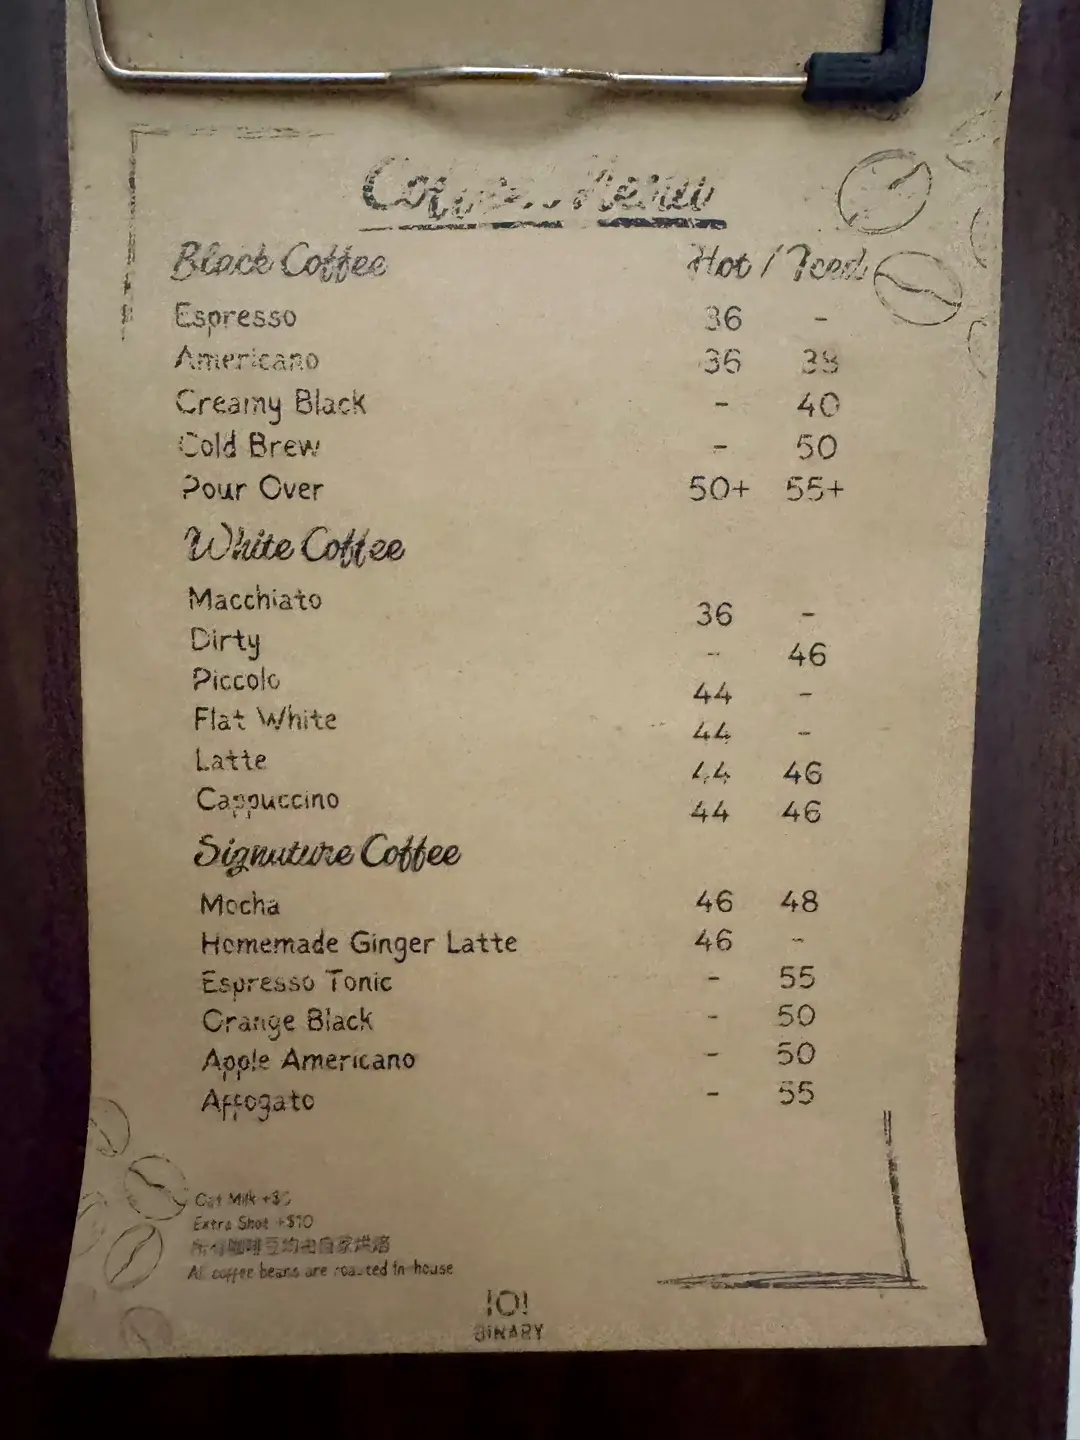 Coffee Menu
Black Coffee Hot / Iced
Espresso 36 -
Americano 36 38
Creamy Black - 40
Cold Brew - 50
Pour Over 50+ 55+
White Coffee
Macchiato 36 -
Dirty - 46
Piccolo 44 -
Flat White 44 -
Latte 44 46
Cappuccino 44 46
Signature Coffee
Mocha 46 48
Homemade Ginger Latte 46 -
Espresso Tonic - 55
Orange Black - 50
Apple Americano - 50
Affogato - 55
Oat Milk
Extra Shot +$10
所有咖啡豆均由自家烘焙
All coffee beans are roasted in-house
BINARY